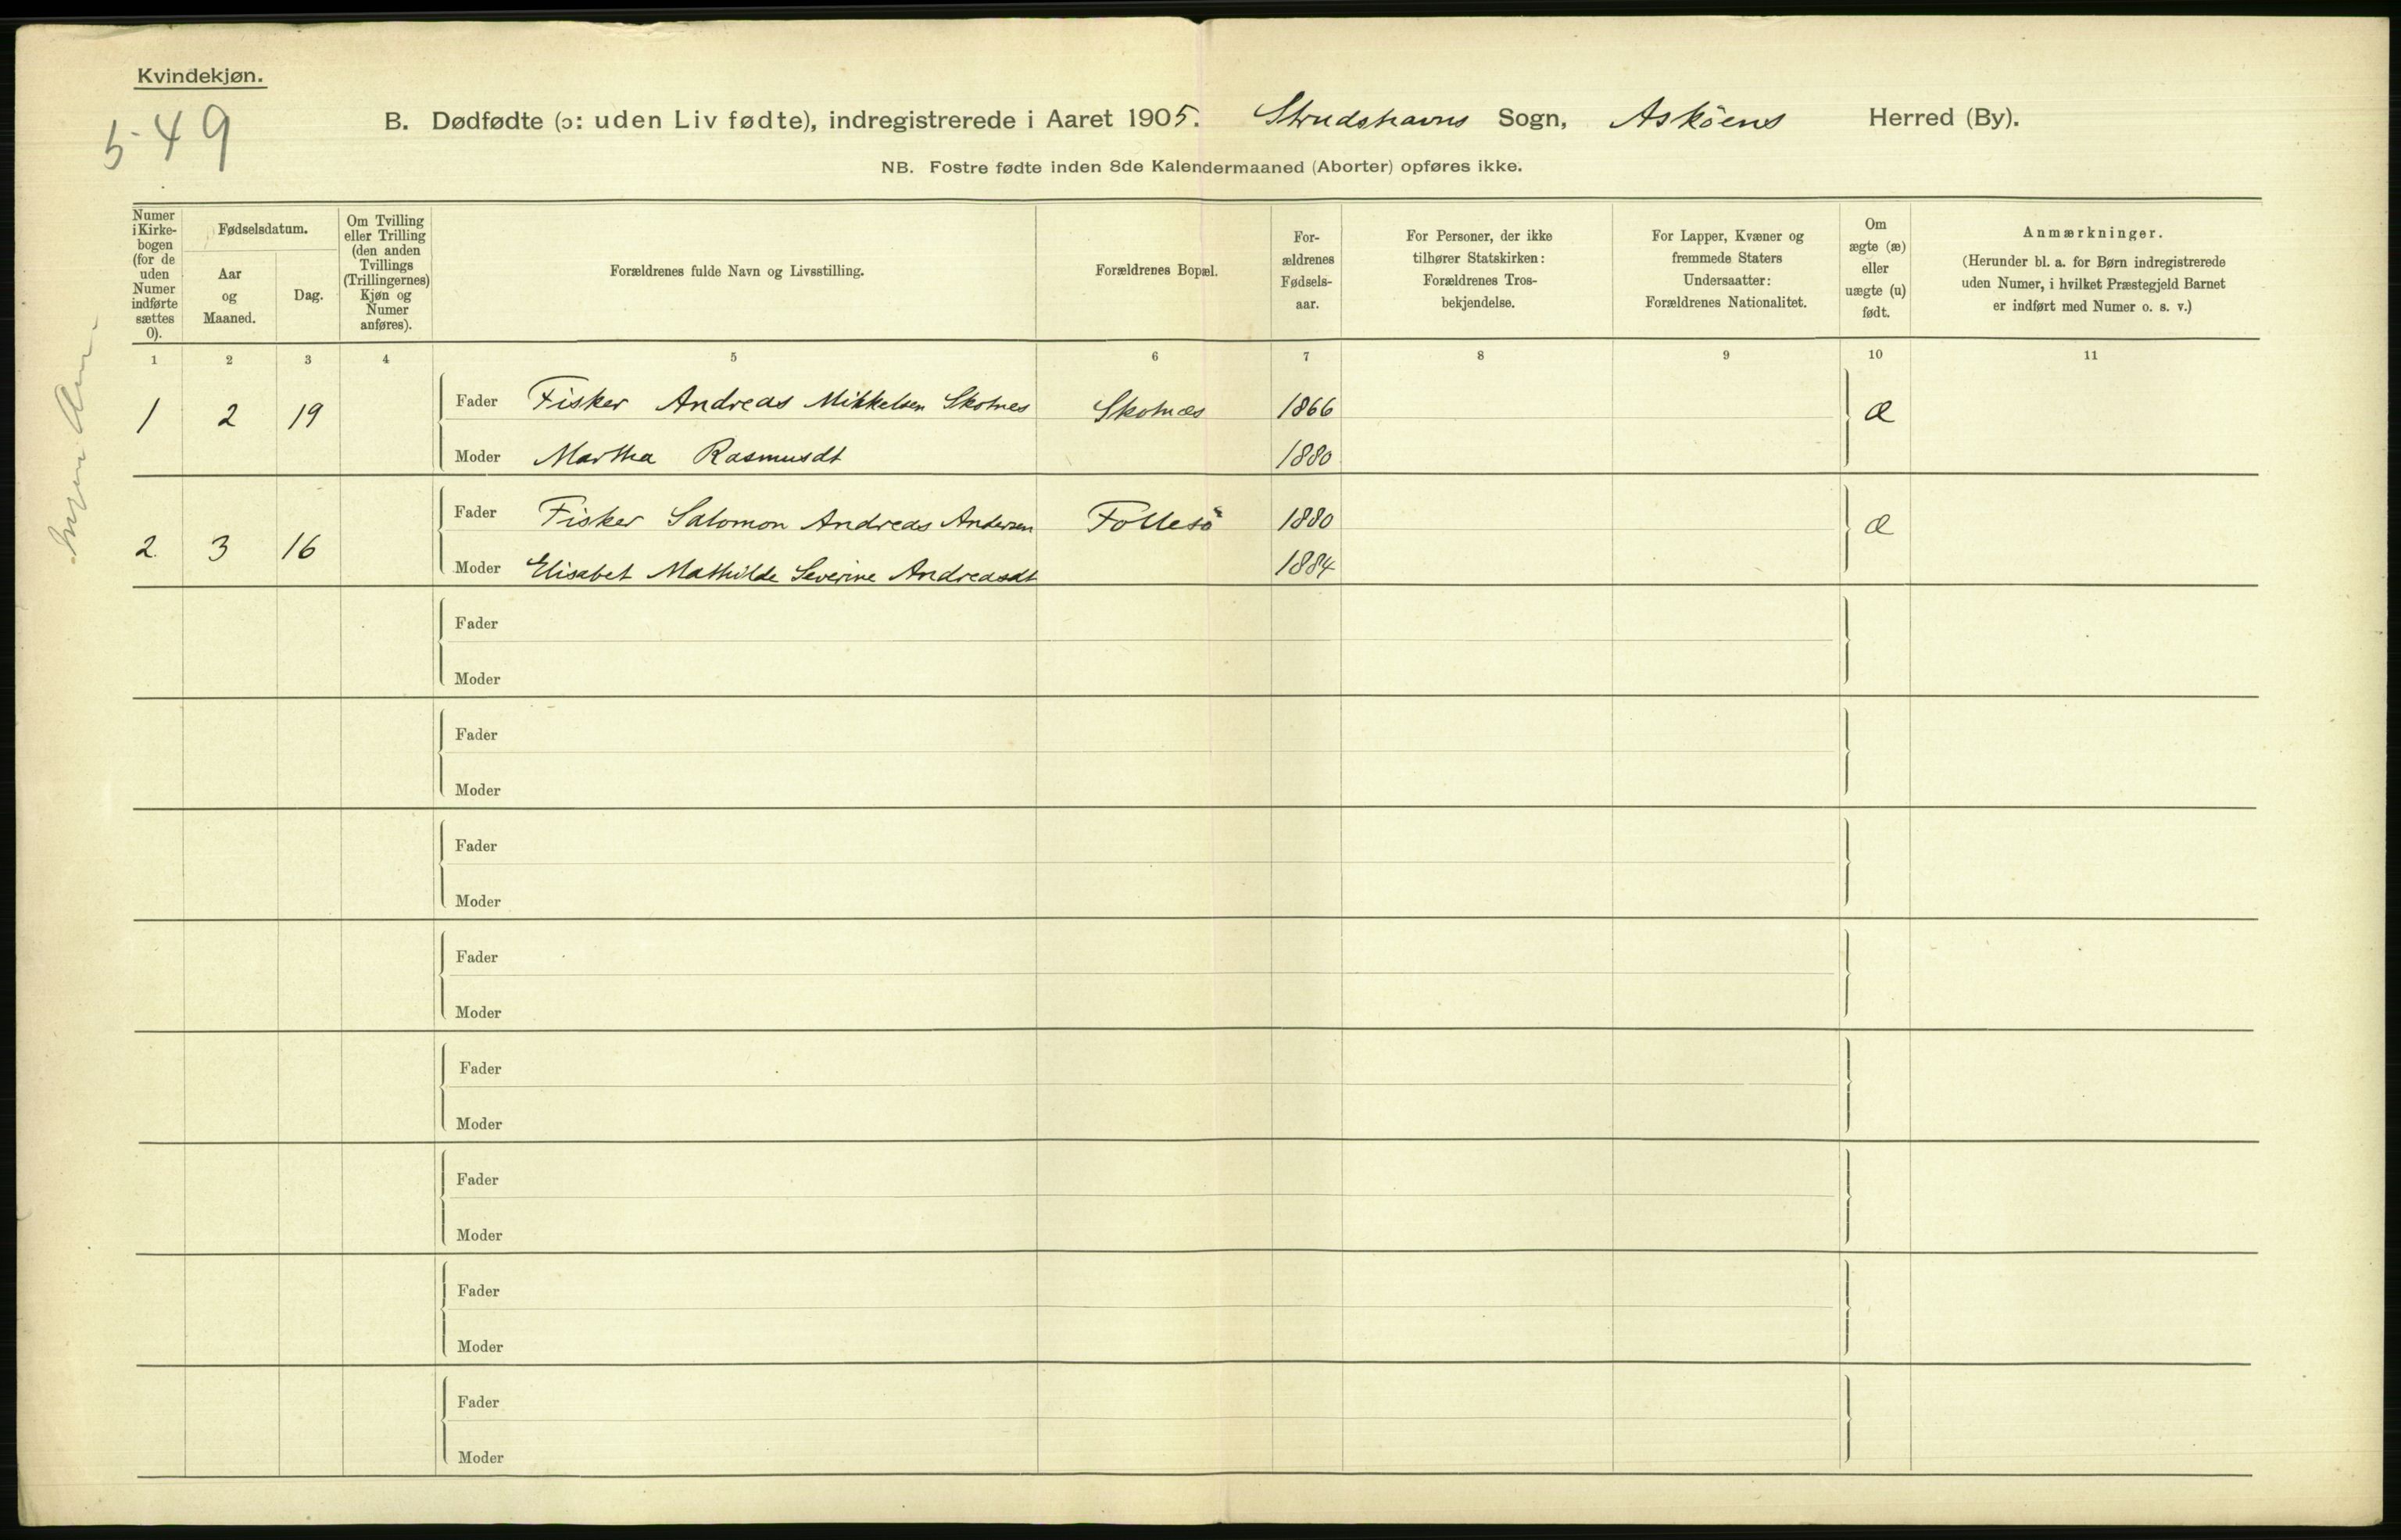 Kvindekjøn.
549
B. Dødfødte (ɔ: uden Liv fødte), indregistrerede i Aaret 1905. Strudshavns Sogn, Asköens Herred (By).
NB. Fostre fødte inden 8de Kalendermaaned (Aborter) opføres ikke.
Numer
i Kirke-
bogen
(for de
uden
Numer
indførte
sættes
0).
Fødselsdatum.
Aar
og
Maaned.
Dag.
Om Tvilling
eller Trilling
(den anden
Tvillings
(Trillingernes)
Kjøn og
Numer
anføres).
Forældrenes fulde Navn og Livsstilling.
Forældrenes Bopæl.
For-
ældrenes
Fødsels-
aar.
For Personer, der ikke
tilhører Statskirken:
Forældrenes Tros-
bekjendelse.
For Lapper, Kvæner og
fremmede Staters
Undersaatter:
Forældrenes Nationalitet.
Om
ægte (æ)
eller
uægte (u)
født.
Anmærkninger.
(Herunder bl. a. for Børn indregistrerede
uden Numer, i hvilket Præstegjeld Barnet
er indført med Numer o. s. v.)
1 2 3 4 5 6 7 8 9 10 11
1 2 19 Fader Fisker Andreas Mikkelsen Skotnes Skotnæs 1866 æ
Moder Martha Rasmusdt 1880
2. 3 16 Fader Fisker Salomon Andreas Andersen Follesö 1880 æ
Moder Elisabet Mathilde Severine Andreasdt 1884
Fader
Moder
Fader
Moder
Fader
Moder
Fader
Moder
Fader
Moder
Fader
Moder
Fader
Moder
Fader
Moder